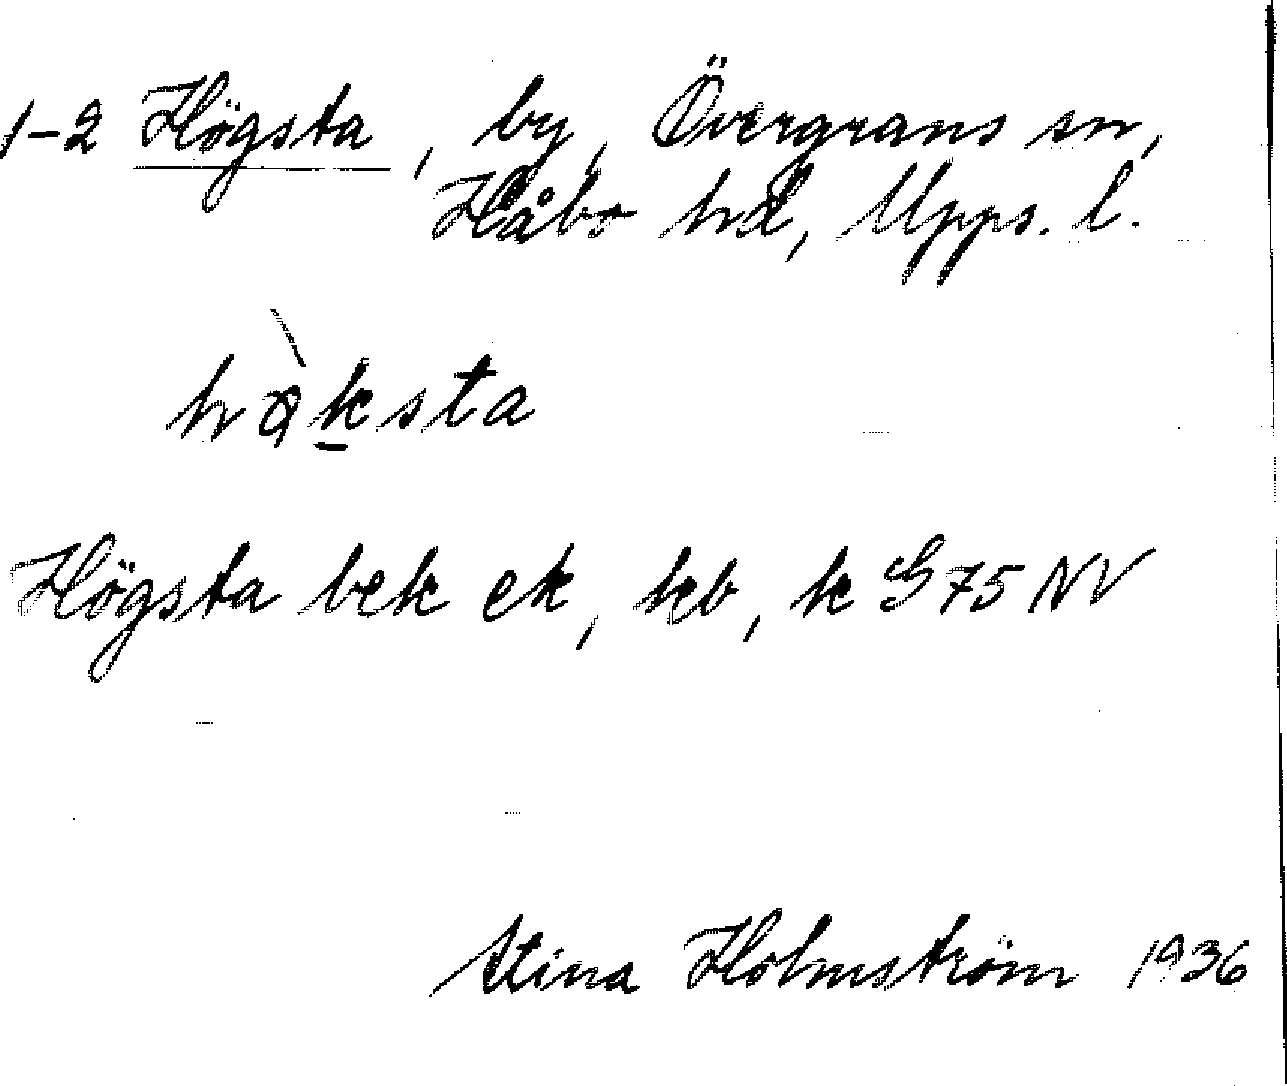 1-2 Högsta, by, Övergrans sn,
Håbo hd, Upps. l.
hö̀ksta
Högsta bek ek, kb, k G 75 NV
Stina Holmström 1936